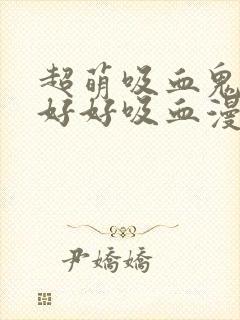 超萌吸血鬼
好好吸血漫
尹嬌嬌